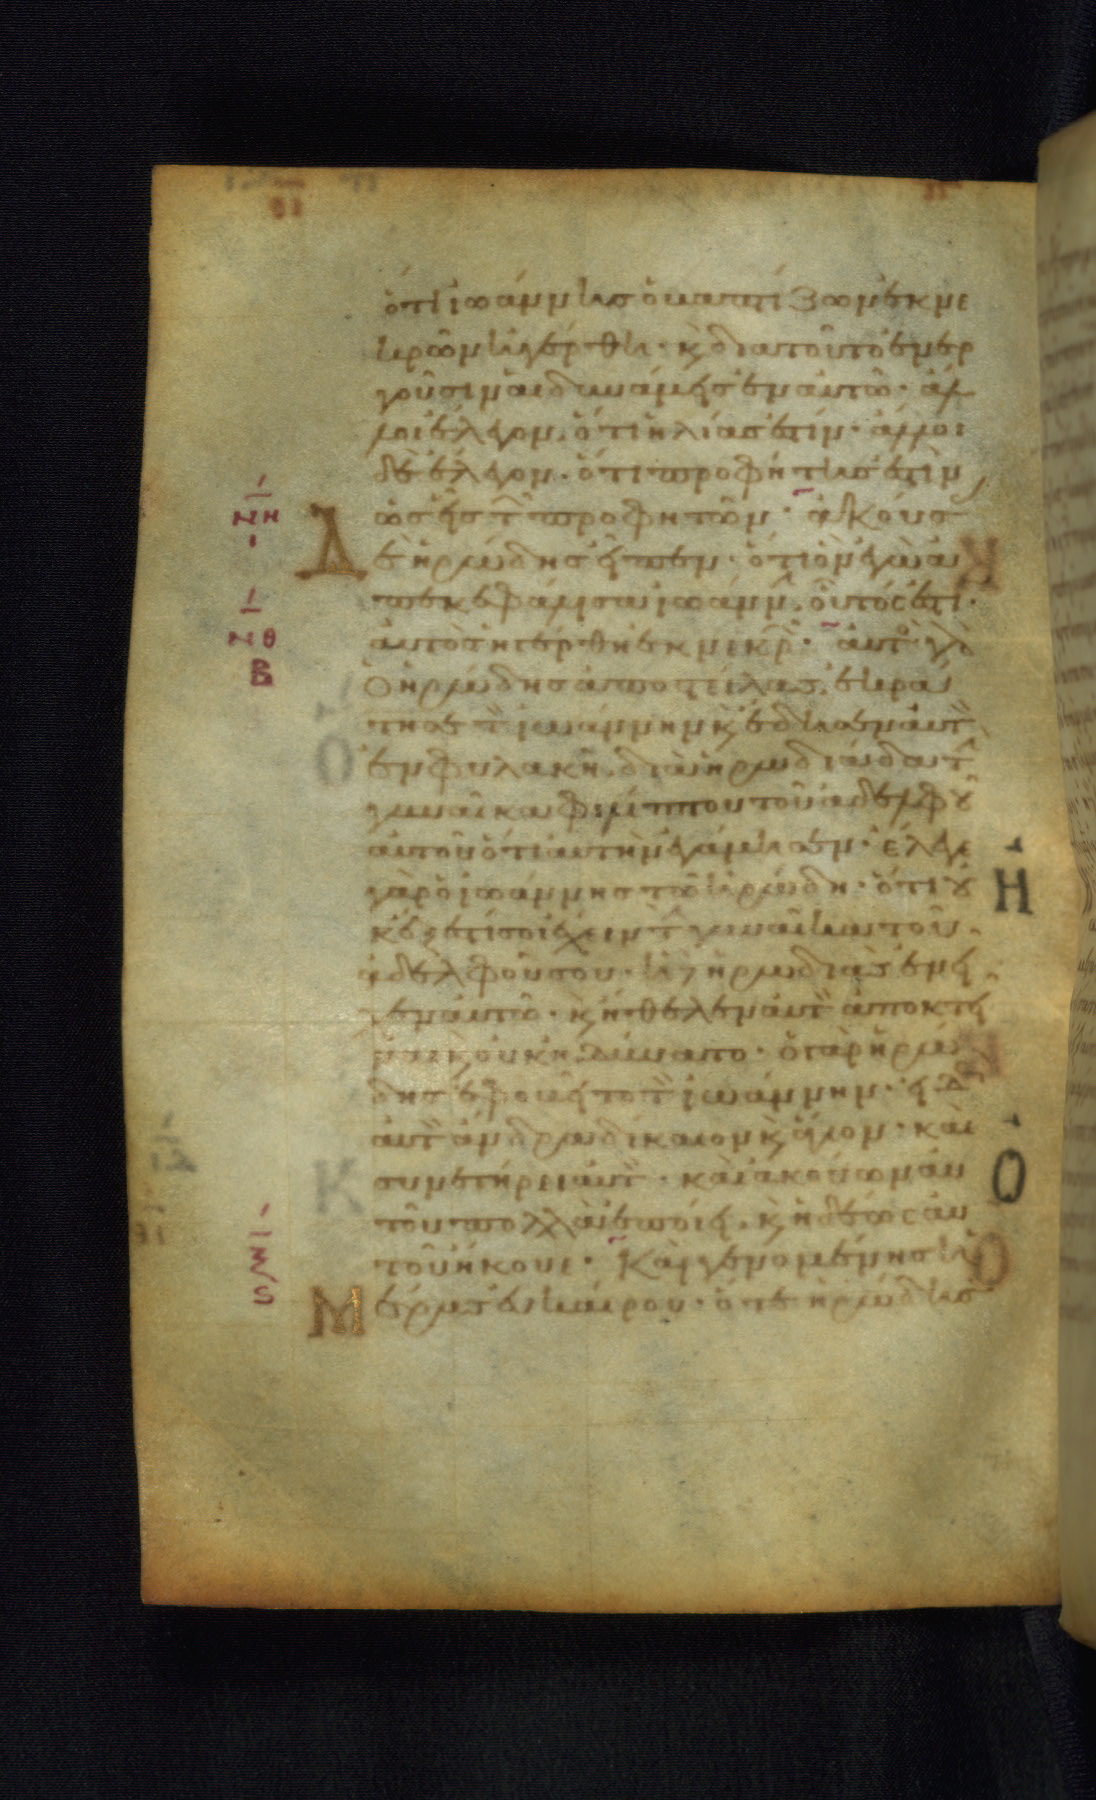 ὅτι ἰωάννης ὁ βαπτίζων ἐκ νε
κρῶν ἠγέρθη· κ διατοῦτο ἐνερ
γοῦσιν αἱ δυνάμεις ἐν αὐτῶ· ἄλ
λοι ἔλεγον. ὅτι ἠλίας ἐστίν· ἄλλοι
δὲ ἔλεγον· ὅτι προφήτης ἐστὶν
ΝΗ
ὡς εἷς τ προφητῶν· ἀκούσ
Δ
ε ἡρώδης εἶπεν· ὅτι ὃν ἐγὼ ἀ
πεκεφάλισα ἰωάνν. οὗτός ἐστι·
ΝΘ
αὐτὸς ἠγέρθη ἐκ νεκρ· αὐτ γὰ
Β
ὁ ἡρώδης ἀποστείλας ἐκρά
τησε τ ἰωάννην κ ἔδησεν αὐτ
ἐν φυλακῆ. διὰ ἡρωδιάδα τ
γυναῖκα φιλίππου τοῦ ἀδελφοῦ
αὐτοῦ ὅτι αὐτὴν ἐγάμησεν· ἔλεγε
γὰρ ὁ ἰωάννης τῶ ἡρώδη· ὅτι οὐ
κ ἔξεστί σοι ἔχειν τ γυναῖκα τοῦ
ἀδελφοῦ σου· ἡ δὲ ἡρωδιὰς ἐνεῖ
χεν αὐτῶ· κ ἤθελεν αὐτ ἀποκτεῖ
ναι κ οὐκ ἠδύνατο· ὁ γὰρ ἡρώ
δης ἐφοβεῖτο τ ἰωάννην· εἰδ
αὐτ ἄνδρα δίκαιον κ ἅγιον· καὶ
συνετήρει αὐτ· καὶ ἀκούων αὐ
τοῦ πολλὰ ἐποίει. κ ἡδέως αὐ
τοῦ ἤκουε· Καὶ γενομένης ἡ
Μ
έρας εὐκαίρου· ὅτε ἡρώδης